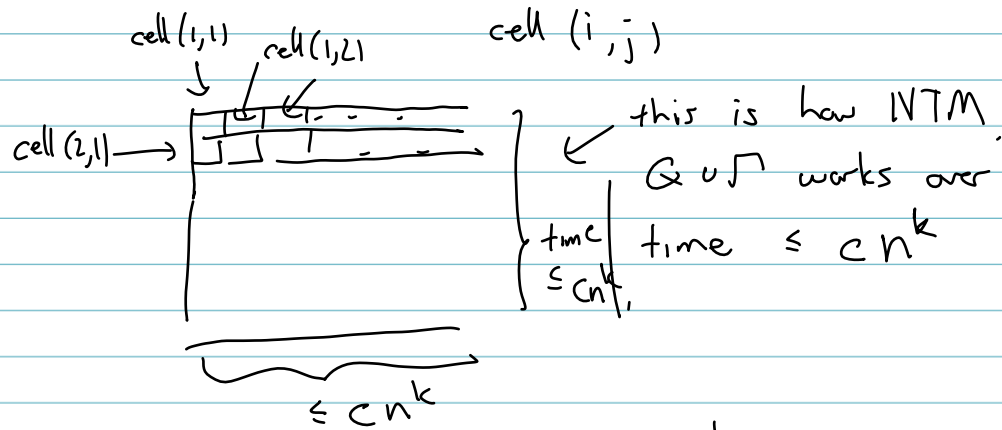 cell(1,1)
cell(1,2)
cell (i,j)
cell(2,1)
this is how NTM
Q ∪ Γ works over
time ≤ cn^k
time
≤ cn^k
≤ cn^k